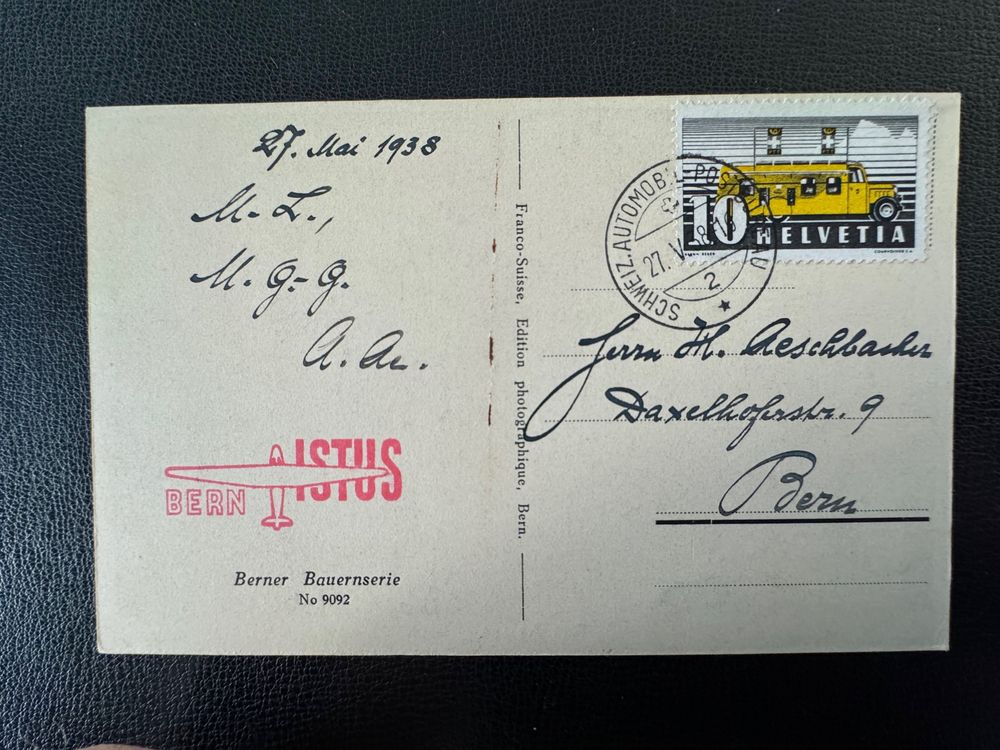 27. Mai 1938
M. L.,
M. g. g.
A. Ae.
ISTUS
BERN
Berner Bauernserie
No 9092
Franco-Suisse, Edition photographique, Bern.
10 HELVETIA
COURVOISIER S.A.
SCHWEIZ. AUTOMOBIL-POST
27. V.
2
Herrn H. Aeschbacher
Daxelhoferstr. 9
Bern